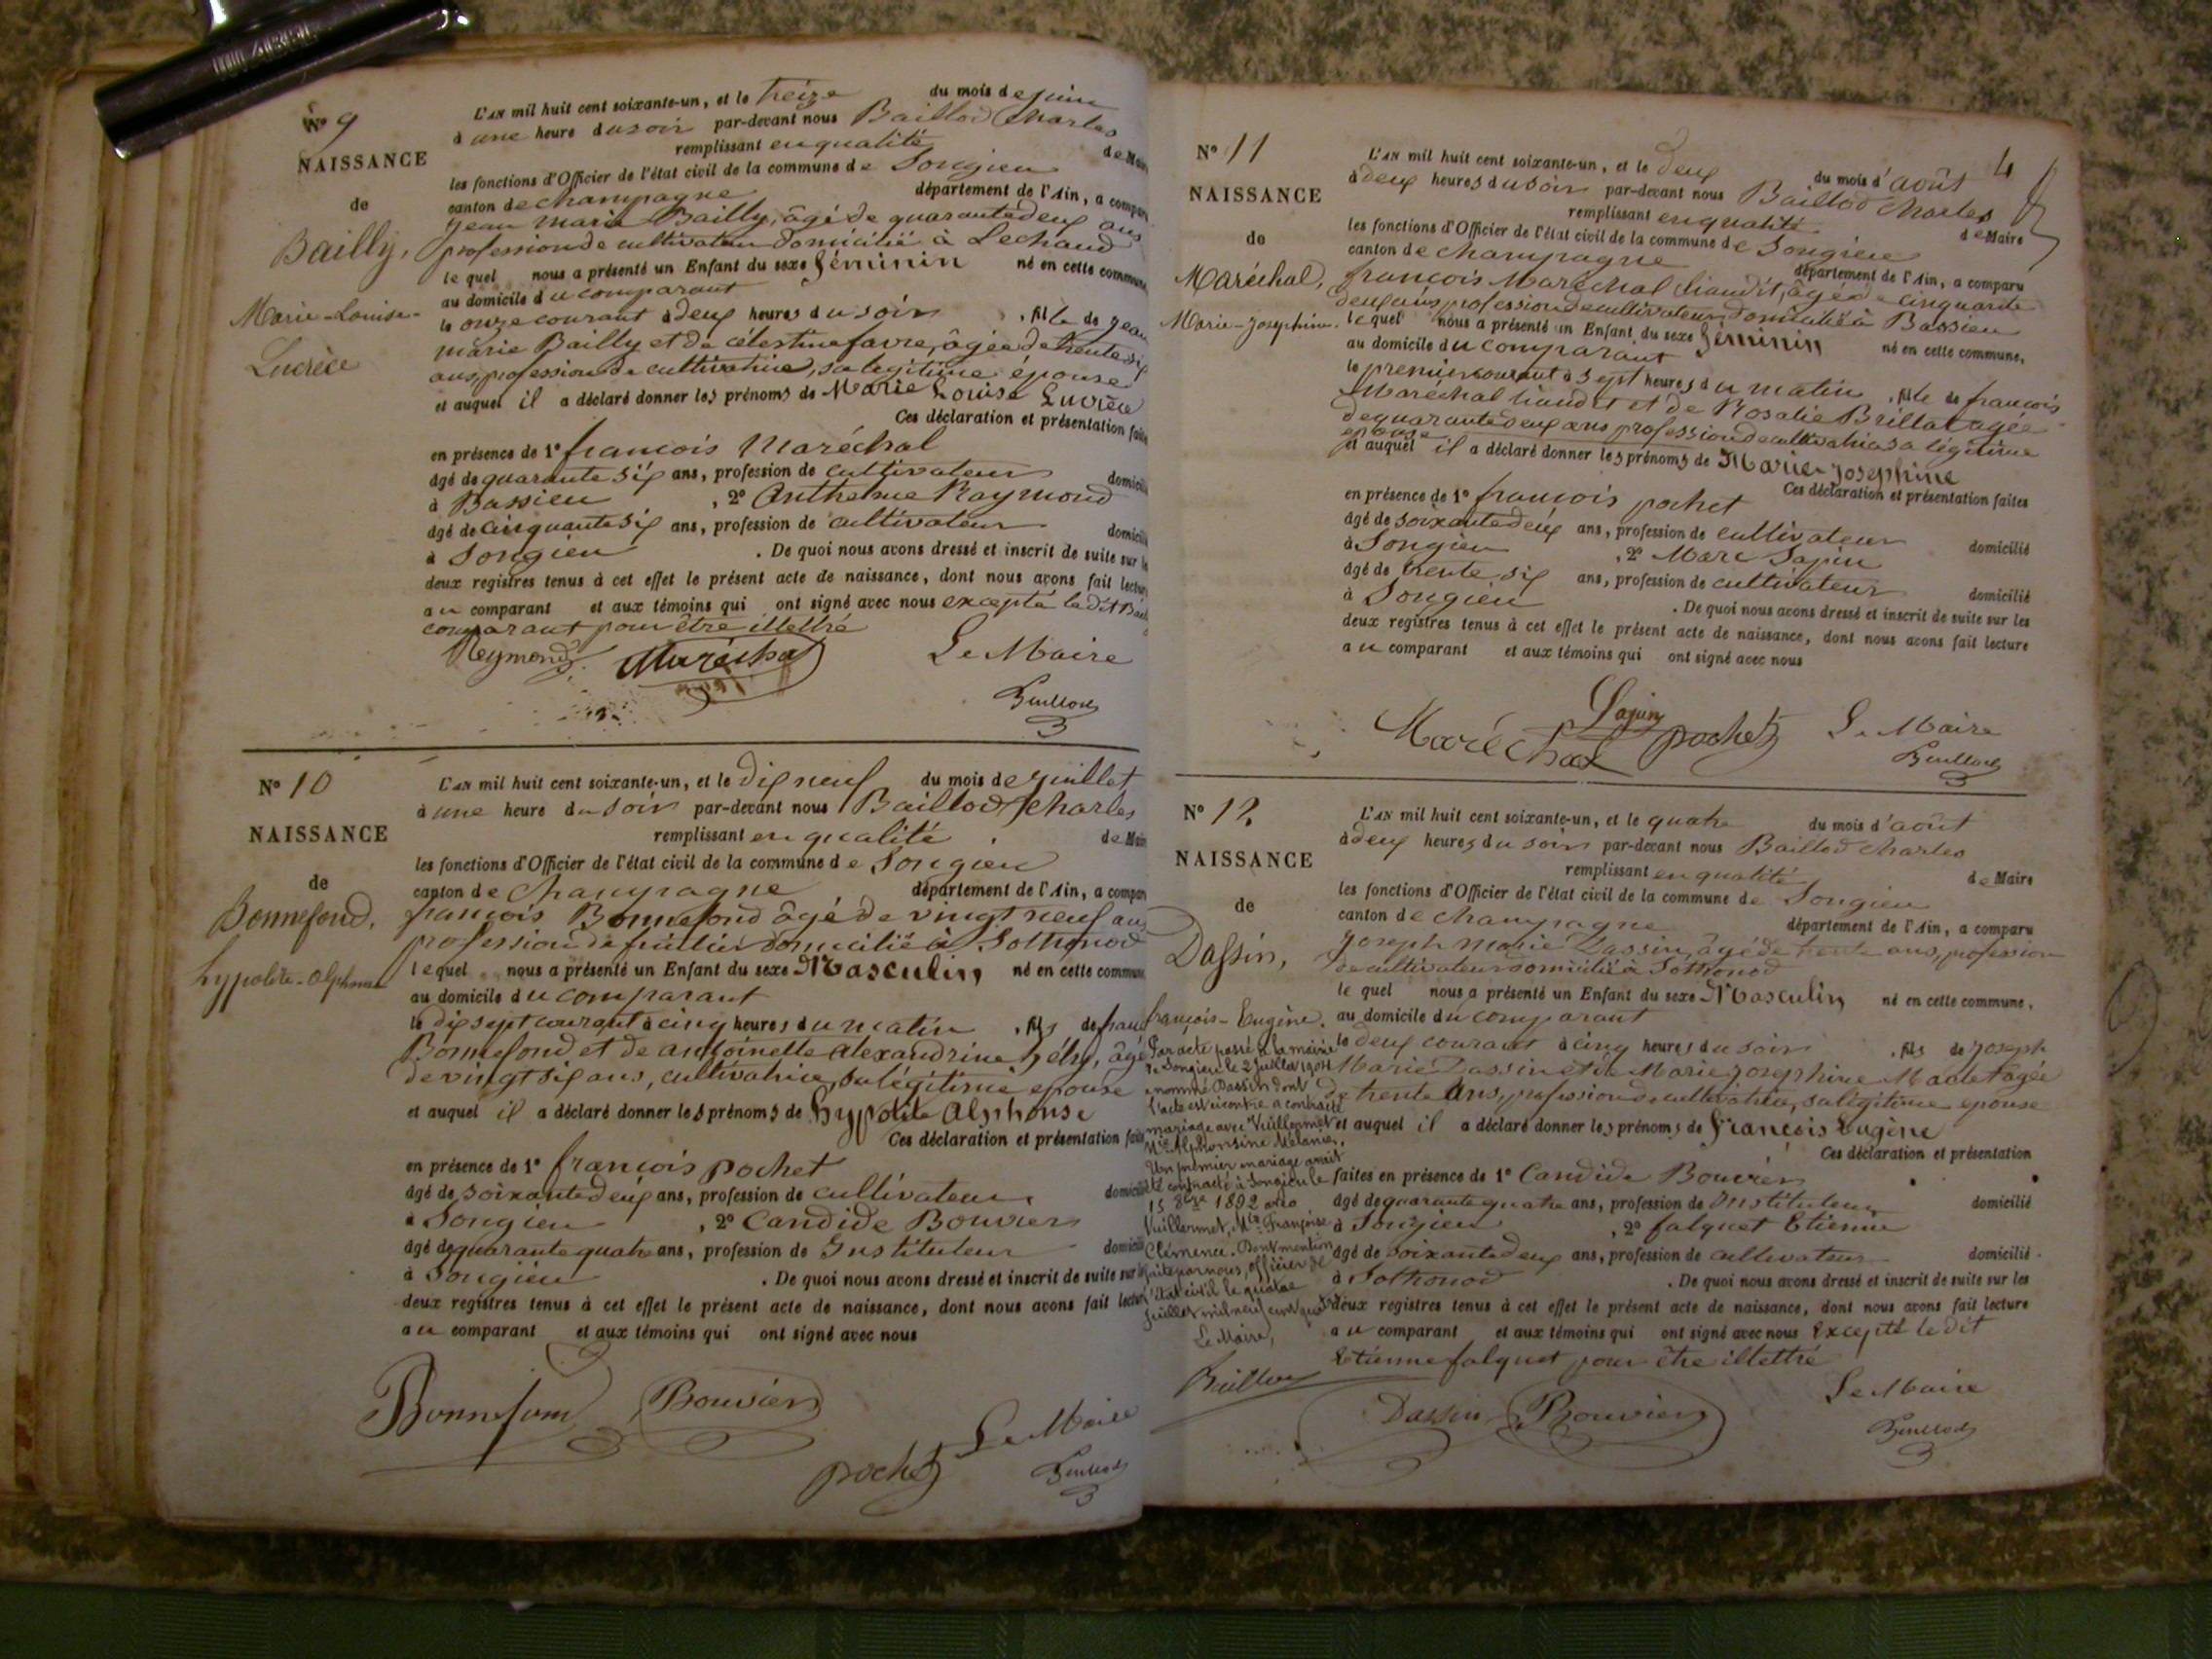 N° 9
NAISSANCE
de
Bailly,
Marie-Louise-
Lucrèce
L'AN mil huit cent soixante-un, et le treize du mois de juin
à une heure du soir par-devant nous Baillod Charles
remplissant en qualité de Mair
les fonctions d'Officier de l'état civil de la commune de Songieu
canton de champagne département de l'Ain, a compar
jean marie Bailly, âgé de quarante deux ans
profession de cultivateur domicilié à Lechaud
le quel nous a présenté un Enfant du sexe féminin né en cette commune
au domicile du comparant
le onze courant à deux heures du soir , fille de jean
marie Bailly et de célestine favre, âgée de trente six
ans, profession de cultivatrice, sa légitime épouse
et auquel il a déclaré donner les prénoms de Marie Louise Lucrèce
Ces déclaration et présentation faites
en présence de 1° françois Maréchal
âgé de quarante six ans, profession de cultivateur domicilié
à Bassieu , 2° Anthelme Raymond
âgé de cinquante six ans, profession de cultivateur domicilié
à Songieu . De quoi nous avons dressé et inscrit de suite sur le
deux registres tenus à cet effet le présent acte de naissance, dont nous avons fait lectur
au comparant et aux témoins qui ont signé avec nous excepté le dit Bail
comparant pour être illettré
Reymond Maréchal Le Maire
Baillod
N° 10
NAISSANCE
de
Bonnefond,
hypolite-alphonse
L'AN mil huit cent soixante-un, et le dix neuf du mois de juillet
à une heure du soir par-devant nous Baillod Charles
remplissant en qualité de Mair
les fonctions d'Officier de l'état civil de la commune de Songieu
canton de Champagne département de l'Ain, a compar
françois Bonnefond âgé de vingt neuf ans
profession de domicilié à Sothonod
lequel nous a présenté un Enfant du sexe Masculin né en cette commun
au domicile du comparant
le dix sept courant à cinq heures du matin , fils de fran
Bonnefond et de antoinette alexandrine âgé
de vingt six ans, cultivatrice, sa légitime épouse
et auquel il a déclaré donner les prénoms de hypolite Alphonse
Ces déclaration et présentation fait
en présence de 1° françois pochet
âgé de soixante deux ans, profession de cultivateur domicilié
à Songieu , 2° Candide Bouvier
âgé de quarante quatre ans, profession de Instituteur domicilié
à Songieu . De quoi nous avons dressé et inscrit de suite sur le
deux registres tenus à cet effet le présent acte de naissance, dont nous avons fait lectur
au comparant et aux témoins qui ont signé avec nous
Bonnefond Bouvier
pochet Le Maire
Baillod
4
N° 11
NAISSANCE
de
Maréchal,
Marie-josephine.
L'AN mil huit cent soixante-un, et le deux du mois d'août
à deux heures du soir par-devant nous Baillod Charles
remplissant en qualité de Maire
les fonctions d'Officier de l'état civil de la commune de Songieu
canton de Champagne département de l'Ain, a comparu
françois Maréchal liaudit, âgé de cinquante
deux ans, profession de cultivateur, domicilié à Bassieu
lequel nous a présenté un Enfant du sexe féminin né en cette commune,
au domicile du comparant
le premier courant à sept heures du matin , fille de françois
Maréchal liaudit et de Rosalie Brillat âgée
de quarante deux ans profession de cultivatrice sa légitime
épouse
et auquel il a déclaré donner les prénoms de Marie josephine
Ces déclaration et présentation faites
en présence de 1° françois pochet
âgé de soixante deux ans, profession de cultivateur domicilié
à Songieu , 2° Marc Sapin
âgé de trente six ans, profession de cultivateur domicilié
à Songieu . De quoi nous avons dressé et inscrit de suite sur les
deux registres tenus à cet effet le présent acte de naissance, dont nous avons fait lecture
au comparant et aux témoins qui ont signé avec nous
Sapin
Maréchal pochet Le Maire
Baillod
N° 12
NAISSANCE
de
Dassin,
françois-Eugène.
L'AN mil huit cent soixante-un, et le quatre du mois d'août
à deux heures du soir par-devant nous Baillod Charles
remplissant en qualité de Maire
les fonctions d'Officier de l'état civil de la commune de Songieu
canton de Champagne département de l'Ain, a comparu
joseph marie Dassin, âgé de trente ans, profession
de cultivateur domicilié à Sothonod
le quel nous a présenté un Enfant du sexe Masculin né en cette commune,
au domicile du comparant
le deux courant à cinq heures du soir , fils de joseph
Marie Dassin et de Marie josephine âgée
de trente ans, profession de cultivatrice, sa légitime épouse
et auquel il a déclaré donner les prénoms de françois Eugène
Ces déclaration et présentation
faites en présence de 1° Candide Bouvier
âgé de quarante quatre ans, profession de Instituteur domicilié
à Songieu , 2° falquet Etienne
âgé de soixante deux ans, profession de cultivateur domicilié
à Sothonod . De quoi nous avons dressé et inscrit de suite sur les
deux registres tenus à cet effet le présent acte de naissance, dont nous avons fait lecture
au comparant et aux témoins qui ont signé avec nous Excepté le dit
Etienne falquet pour être illettré
Dassin Bouvier Le Maire
Baillod
Par acte passé à la mairie
de Songieu le 2 juillet 1904
nommé Dassin dont
l'acte est ci contre a contracté
mariage avec Vuillermet
Mie Alphonsine Mélanie.
Un premier mariage avait
été contracté à Songieu le
15 8bre 1892 avec
Vuillermet, Mie Françoise
Clémence. Dont mention
faite par nous, officier de
l'état civil le quatre
juillet mil neuf cent quatre
Le Maire,
Baillod